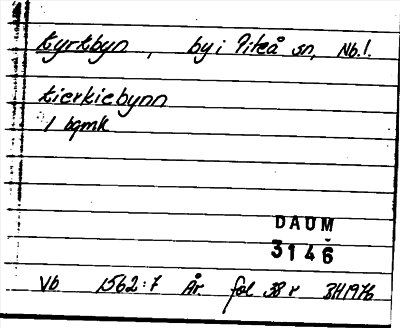 tyrtbyn, by i Piteå sn, Nb.l.
tierkiebynn
1 bgmk
DAUM
3146
Vb 1562:7 År. fol 38 r BH1976